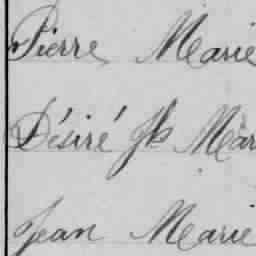 Pierre Marie
Désiré Jh Mar
Jean Marie